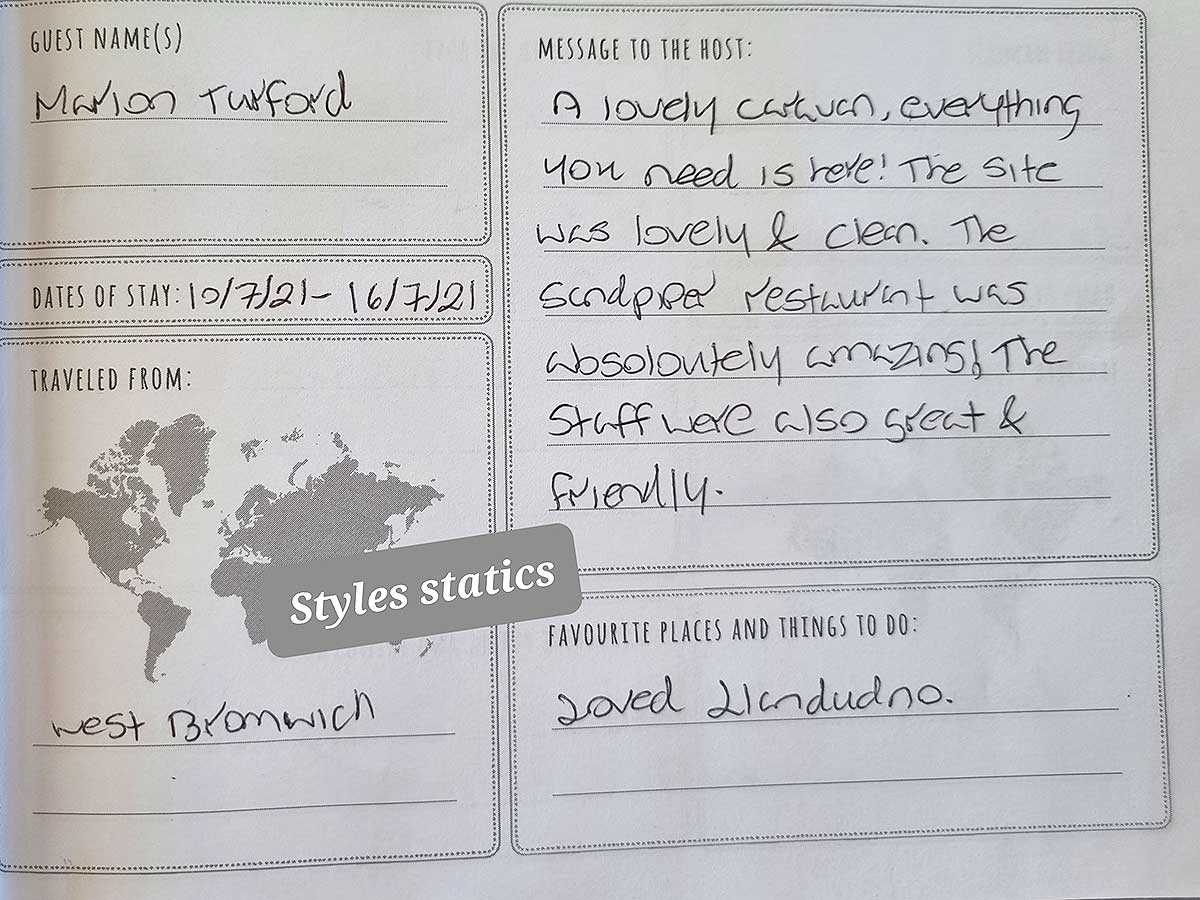 GUEST NAME(S)
Marion Turford
DATES OF STAY: 10/7/21 - 16/7/21
TRAVELED FROM:
West Bromwich
MESSAGE TO THE HOST:
A lovely caravan, everything
you need is here! The site
was lovely & clean. The
Sandpiper restaurant was
absoloutely amazing! The
Staff were also great &
friendly.
Styles statics
FAVOURITE PLACES AND THINGS TO DO:
Loved Llandudno.